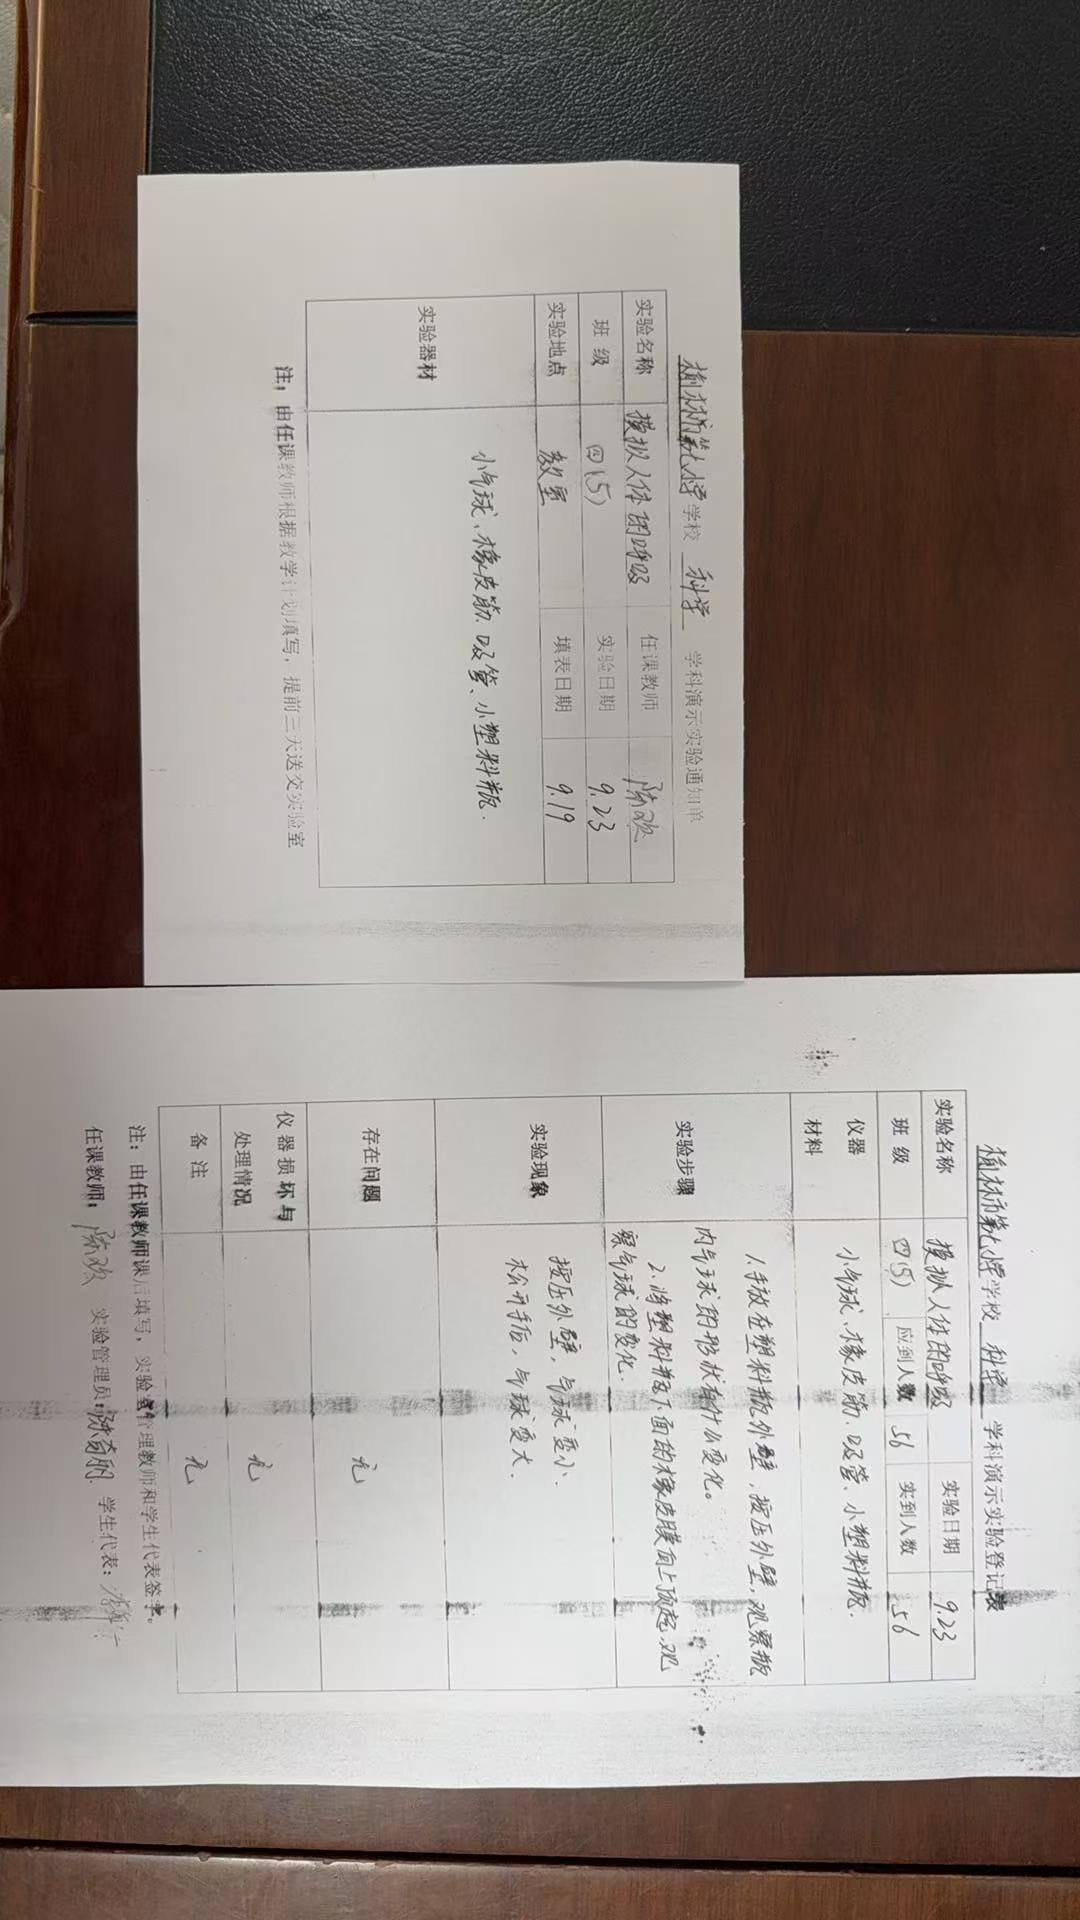 榆林市第 学校 科学 学科演示实验通知单
实验名称 模拟人体的呼吸 任课教师 陈欢
班 级 四(5) 实验日期 9.23
实验地点 教室 填表日期 9.19
实验器材 小气球、橡皮筋、吸管、小塑料瓶.
注:由任课教师根据教学计划填写,提前三天送交实验室
榆林市第 学校 科学 学科演示实验登记表
实验名称 模拟人体的呼吸 实验日期 9.23
班 级 四(5) 应到人数 56 实到人数 56
仪器
材料
小气球、橡皮筋、吸管、小塑料瓶.
实验步骤
1.手放在塑料瓶外壁,按压外壁,观察瓶
内气球的形状有什么变化。
2.将塑料瓶下面的橡皮膜向上顶起,观
察气球的变化.
实验现象
按压外壁,气球变小.
松开手后,气球变大.
存在问题 无
仪器损坏与
处理情况
无
备 注 无
注:由任课教师课后填写,实验室管理教师和学生代表签字。
任课教师:陈欢 实验管理员: 学生代表: